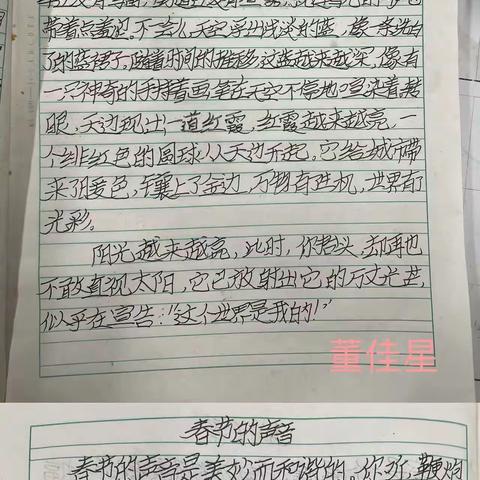 带着点羞涩。不一会儿,天空浮出浅淡的蓝,像一条洗白
了的蓝裙子,随着时间的推移,这蓝越来越深,像有
一只神奇的手持着画笔在天空不停地渲染着。转
眼,天边现出一道红霞,红霞越来越亮,一
个绯红色的圆球从天边升起。它给城市带
来了暖色,镶上了金边,万物有生机,世界有
光彩。
阳光越来越亮,此时,你抬头,却再也
不敢直视太阳,它已放射出它的万丈光芒,
似乎在宣告:"这个世界是我的!"
董佳星
春节的声音
春节的声音是美妙而和谐的。你听,鞭炮